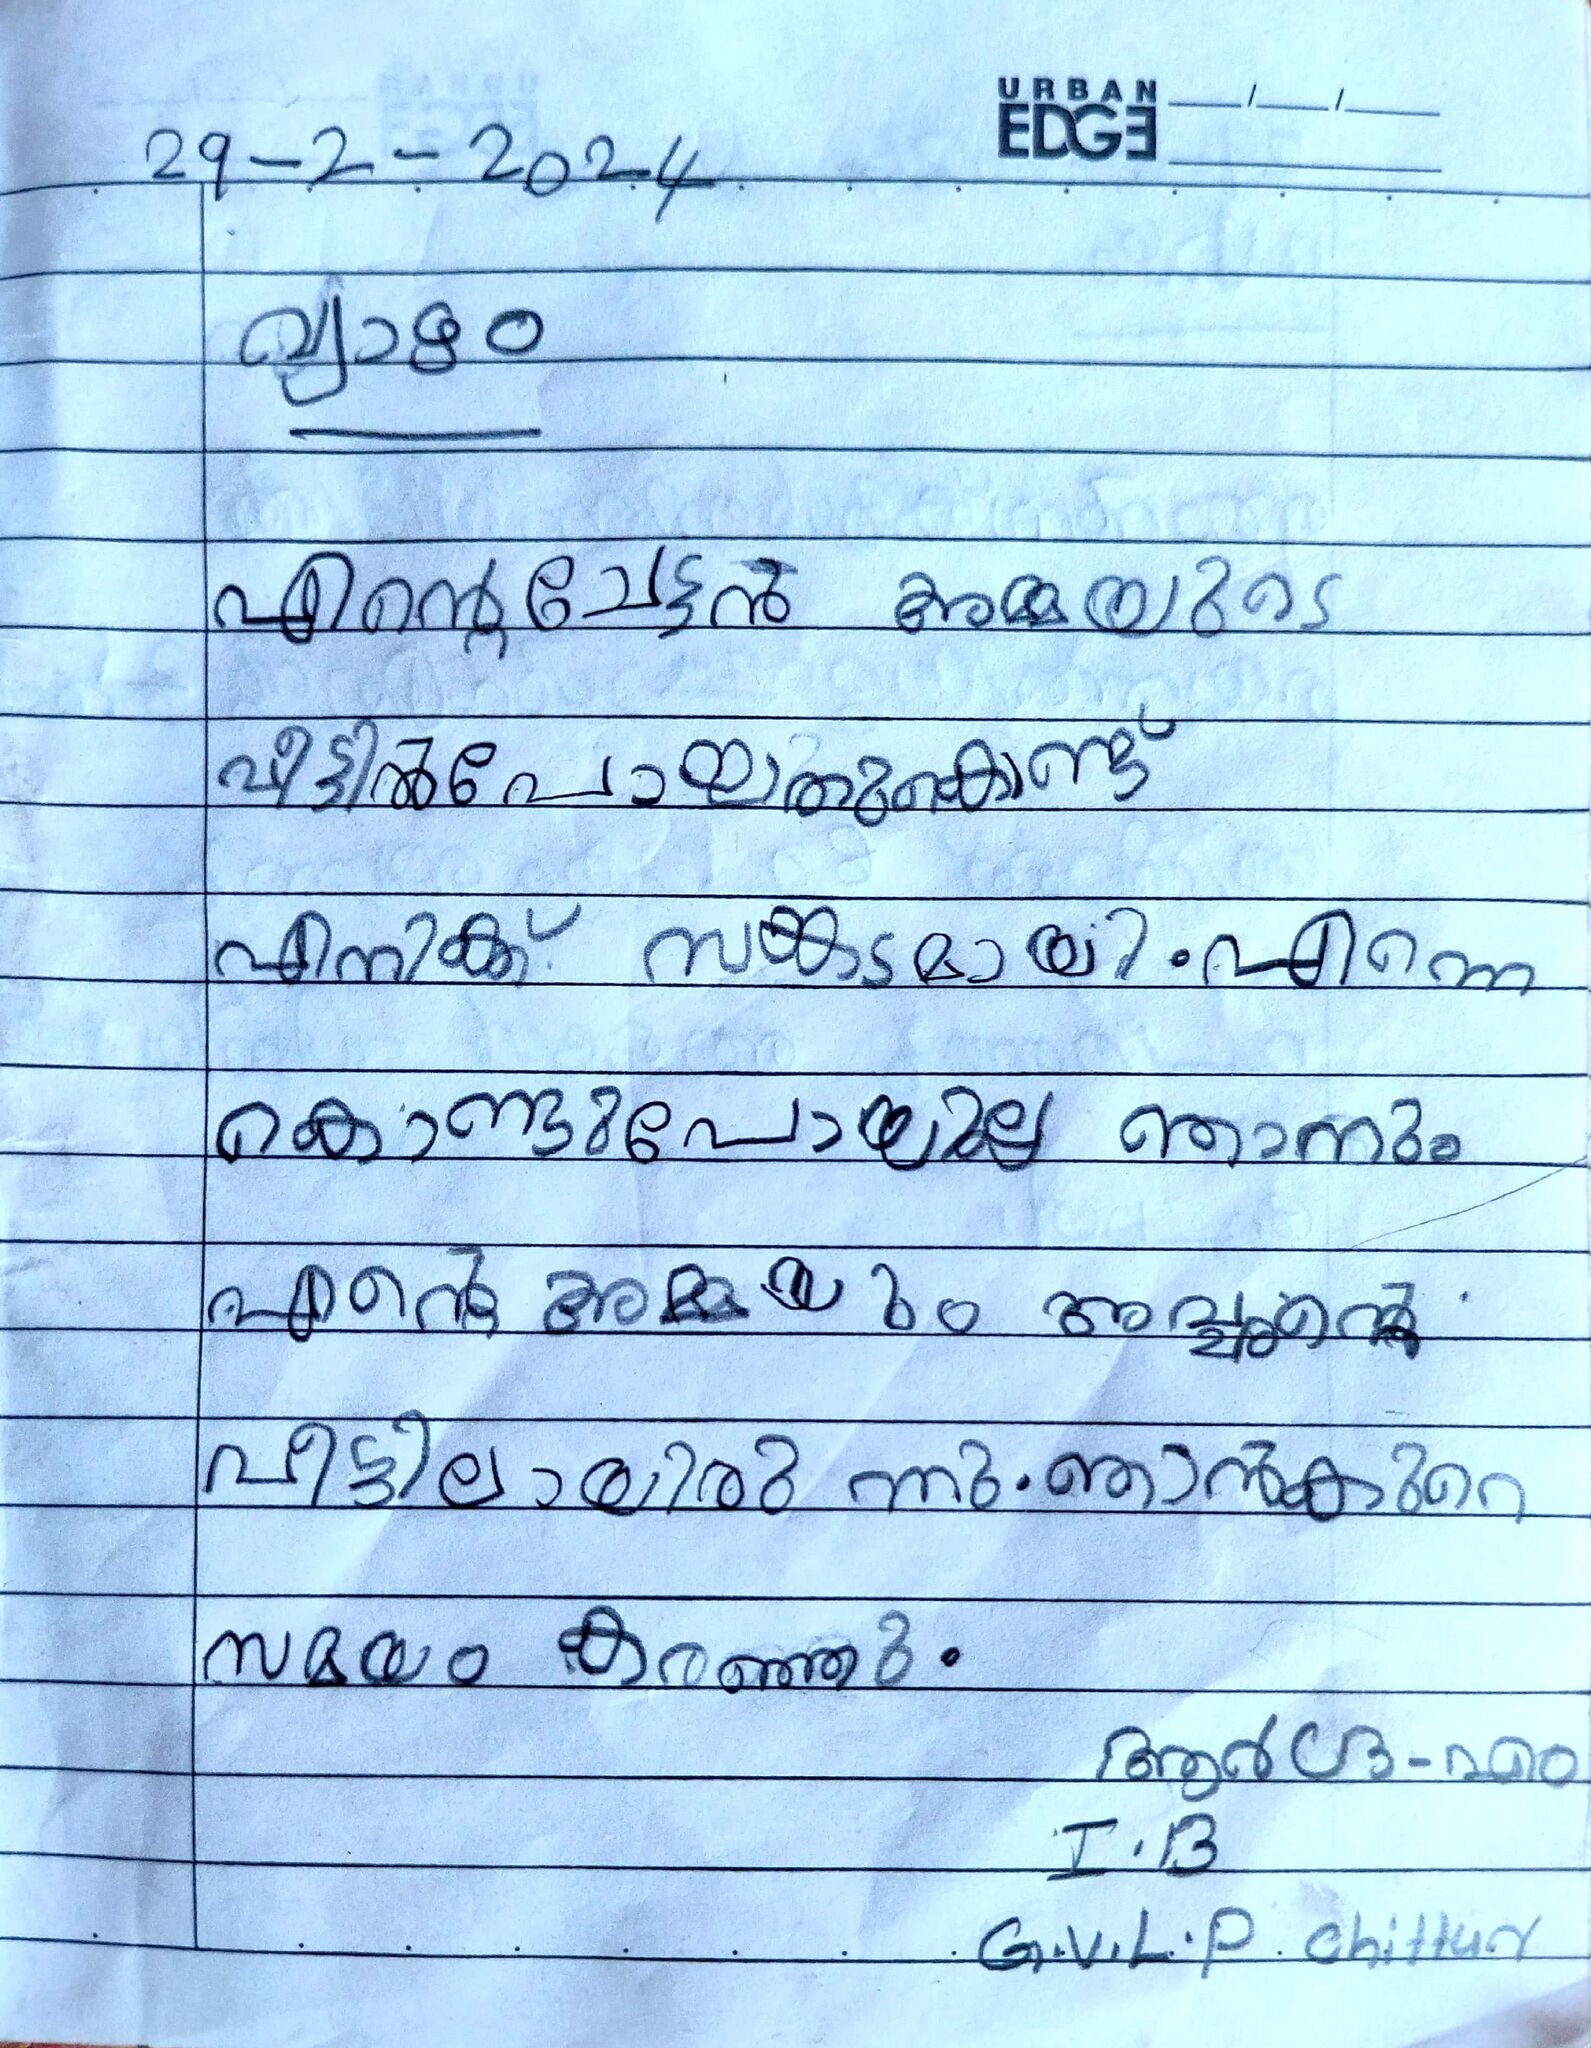 URBAN
EDGE
29-2-2024
വ്യാഴം
എന്റെ ചേട്ടൻ അമ്മയുടെ
വീട്ടിൽ പോയതുകൊണ്ട്
എനിക്ക് സങ്കടമായി. എന്നെ
കൊണ്ടുപോയില്ല ഞാനും
എന്റെ അമ്മയും അച്ഛന്റെ
വീട്ടിലായിരു ന്നു. ഞാൻ കുറെ
സമയം കരഞ്ഞു.
I.B
G.V.L.P. Chittur